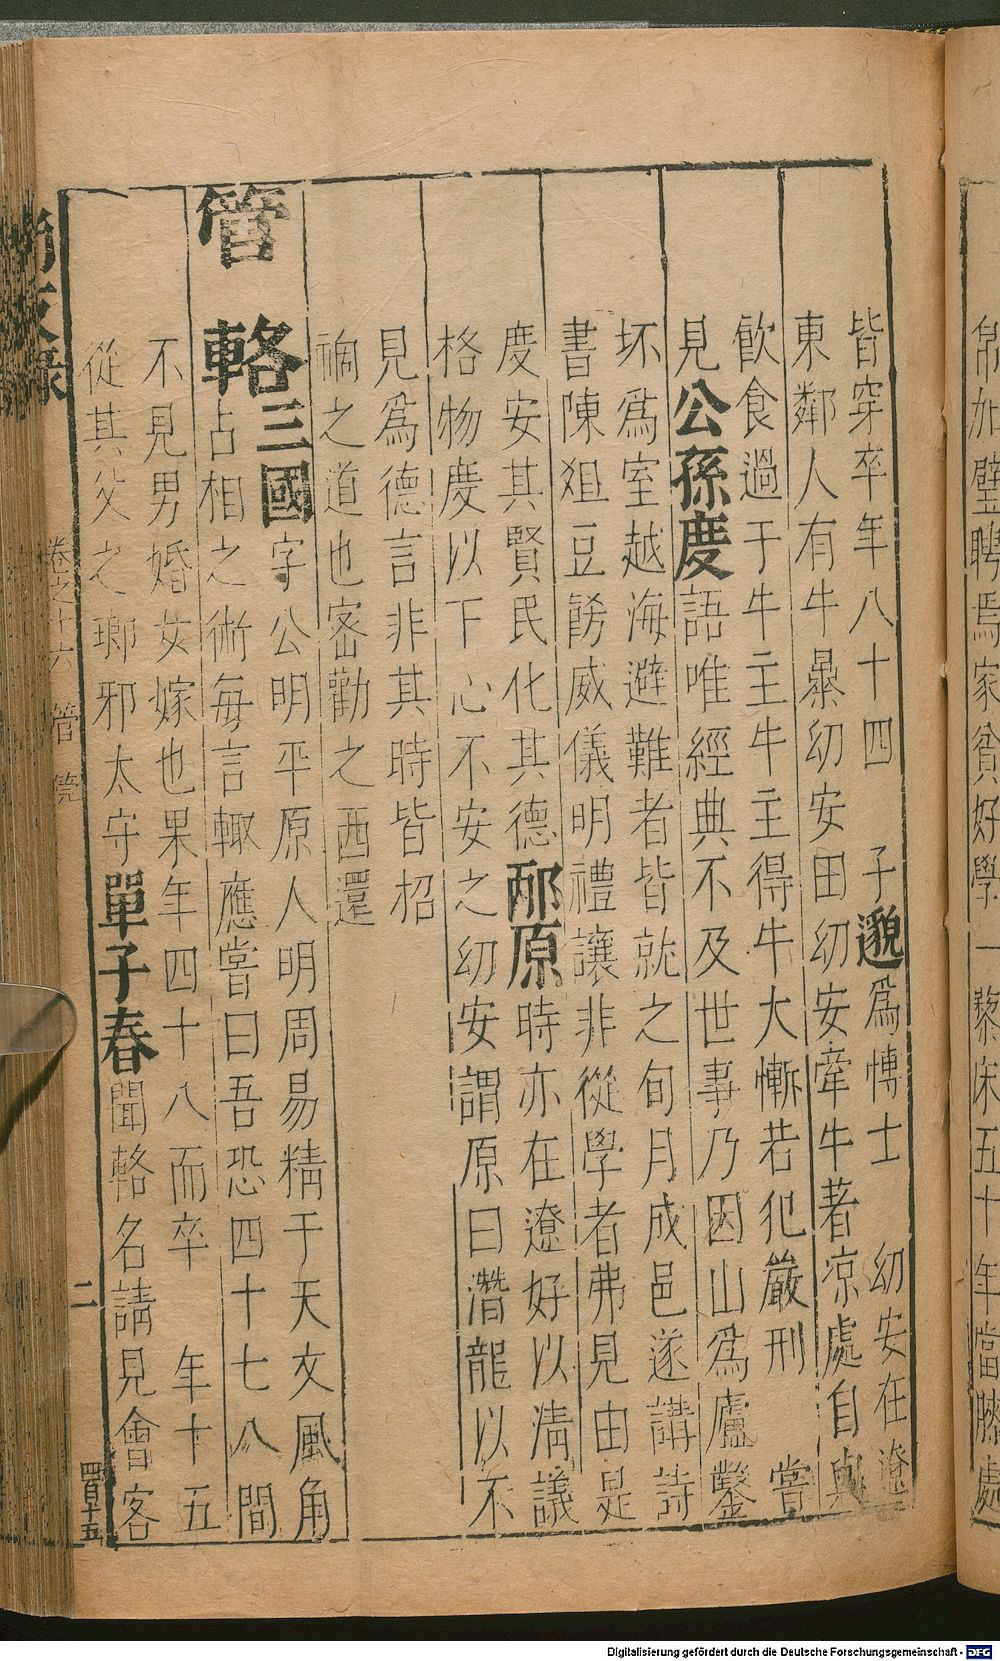 皆穿卒年八十四　子邈爲愽士　幼安在遼
東鄰人有牛暴幼安田幼安牽牛著凉處自與
飲食過于牛主牛主得牛大慚若犯嚴刑　嘗
見公孫度語唯經典不及世事乃因山爲廬鑿
坏爲室越海避難者皆就之旬月成邑遂講詩
書陳俎豆餝威儀明禮讓非從學者弗見由是
度安其賢民化其德邴原時亦在遼好以清議
格物度以下心不安之幼安謂原曰潛龍以不
見爲德言非其時皆招
禍之道也宻勸之西還
管輅三國字公明平原人明周易精于天文風角
占相之術毎言輙應嘗曰吾恐四十七八間
不見男婚女嫁也果年四十八而卒　年十五
從其父之瑯邪太守單子春聞輅名請見會客
尚友錄　卷之十六　管　二　四百十五
帛加璧聘焉家貧好學一藜床五十年當膝處
Digitalisierung gefördert durch die Deutsche Forschungsgemeinschaft - DFG